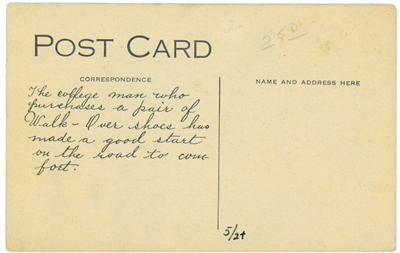 POST CARD
CORRESPONDENCE
NAME AND ADDRESS HERE
The college man who
purchases a pair of
Walk-Over shoes has
made a good start
on the road to com-
fort.
5/24